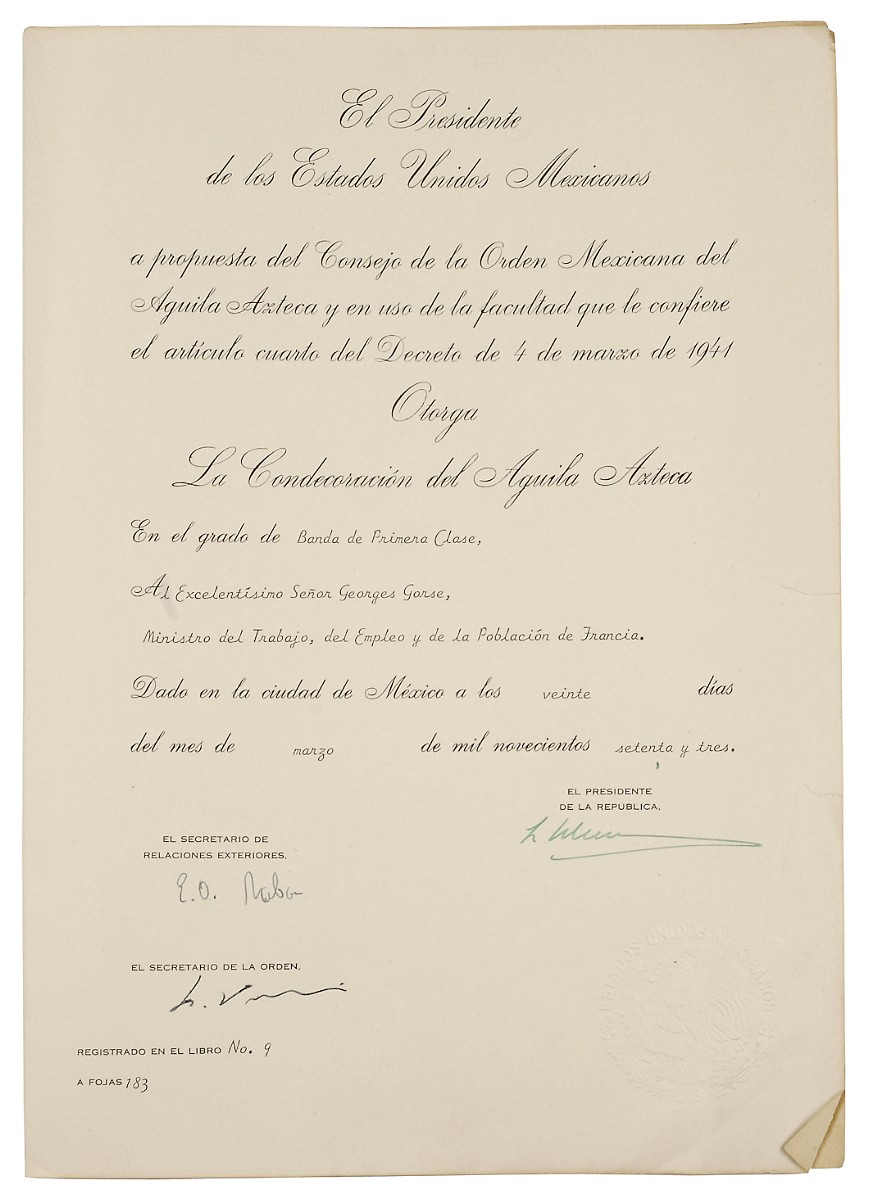 El Presidente
de los Estados Unidos Mexicanos
a propuesta del Consejo de la Orden Mexicana del
Aguila Azteca y en uso de la facultad que le confiere
el artículo cuarto del Decreto de 4 de marzo de 1941
Otorga
La Condecoración del Aguila Azteca
En el grado de Banda de Primera Clase,
Al Excelentísimo Señor Georges Gorse,
Ministro del Trabajo, del Empleo y de la Población de Francia.
Dado en la ciudad de México a los veinte días
del mes de marzo de mil novecientos setenta y tres.
EL PRESIDENTE
DE LA REPUBLICA,
EL SECRETARIO DE
RELACIONES EXTERIORES,
E.O. Rabasa
EL SECRETARIO DE LA ORDEN,
REGISTRADO EN EL LIBRO No. 9
A FOJAS 183
ESTADOS UNIDOS MEXICANOS